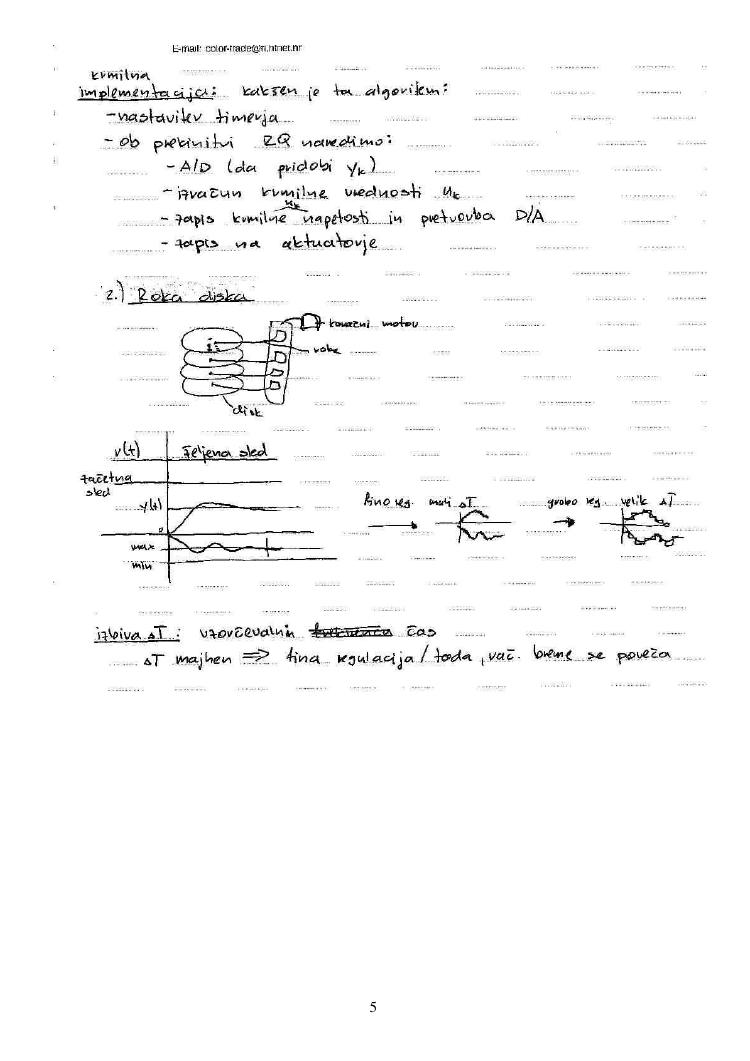 E-mail: color-trade@ri.htnet.hr
krmilna
implementacija: kakšen je ta algoritem:
- nastavitev timerja
- ob prekinitvi IRQ naredimo:
- A/D (da pridobi yk)
- izračun krmilne vrednosti uk
uk
- zapis krmilne napetosti in pretvorba D/A
- zapis na aktuatorje
2.) Roka diska
koračni motor
roke
disk
r(t) željena sled
začetna
sled
y(t)
fino reg. mali ΔT
grobo reg. velik ΔT
0
max
min
izbira ΔT: vzorčevalnin čas
ΔT majhen => fina regulacija / toda, rač. breme se poveča
5